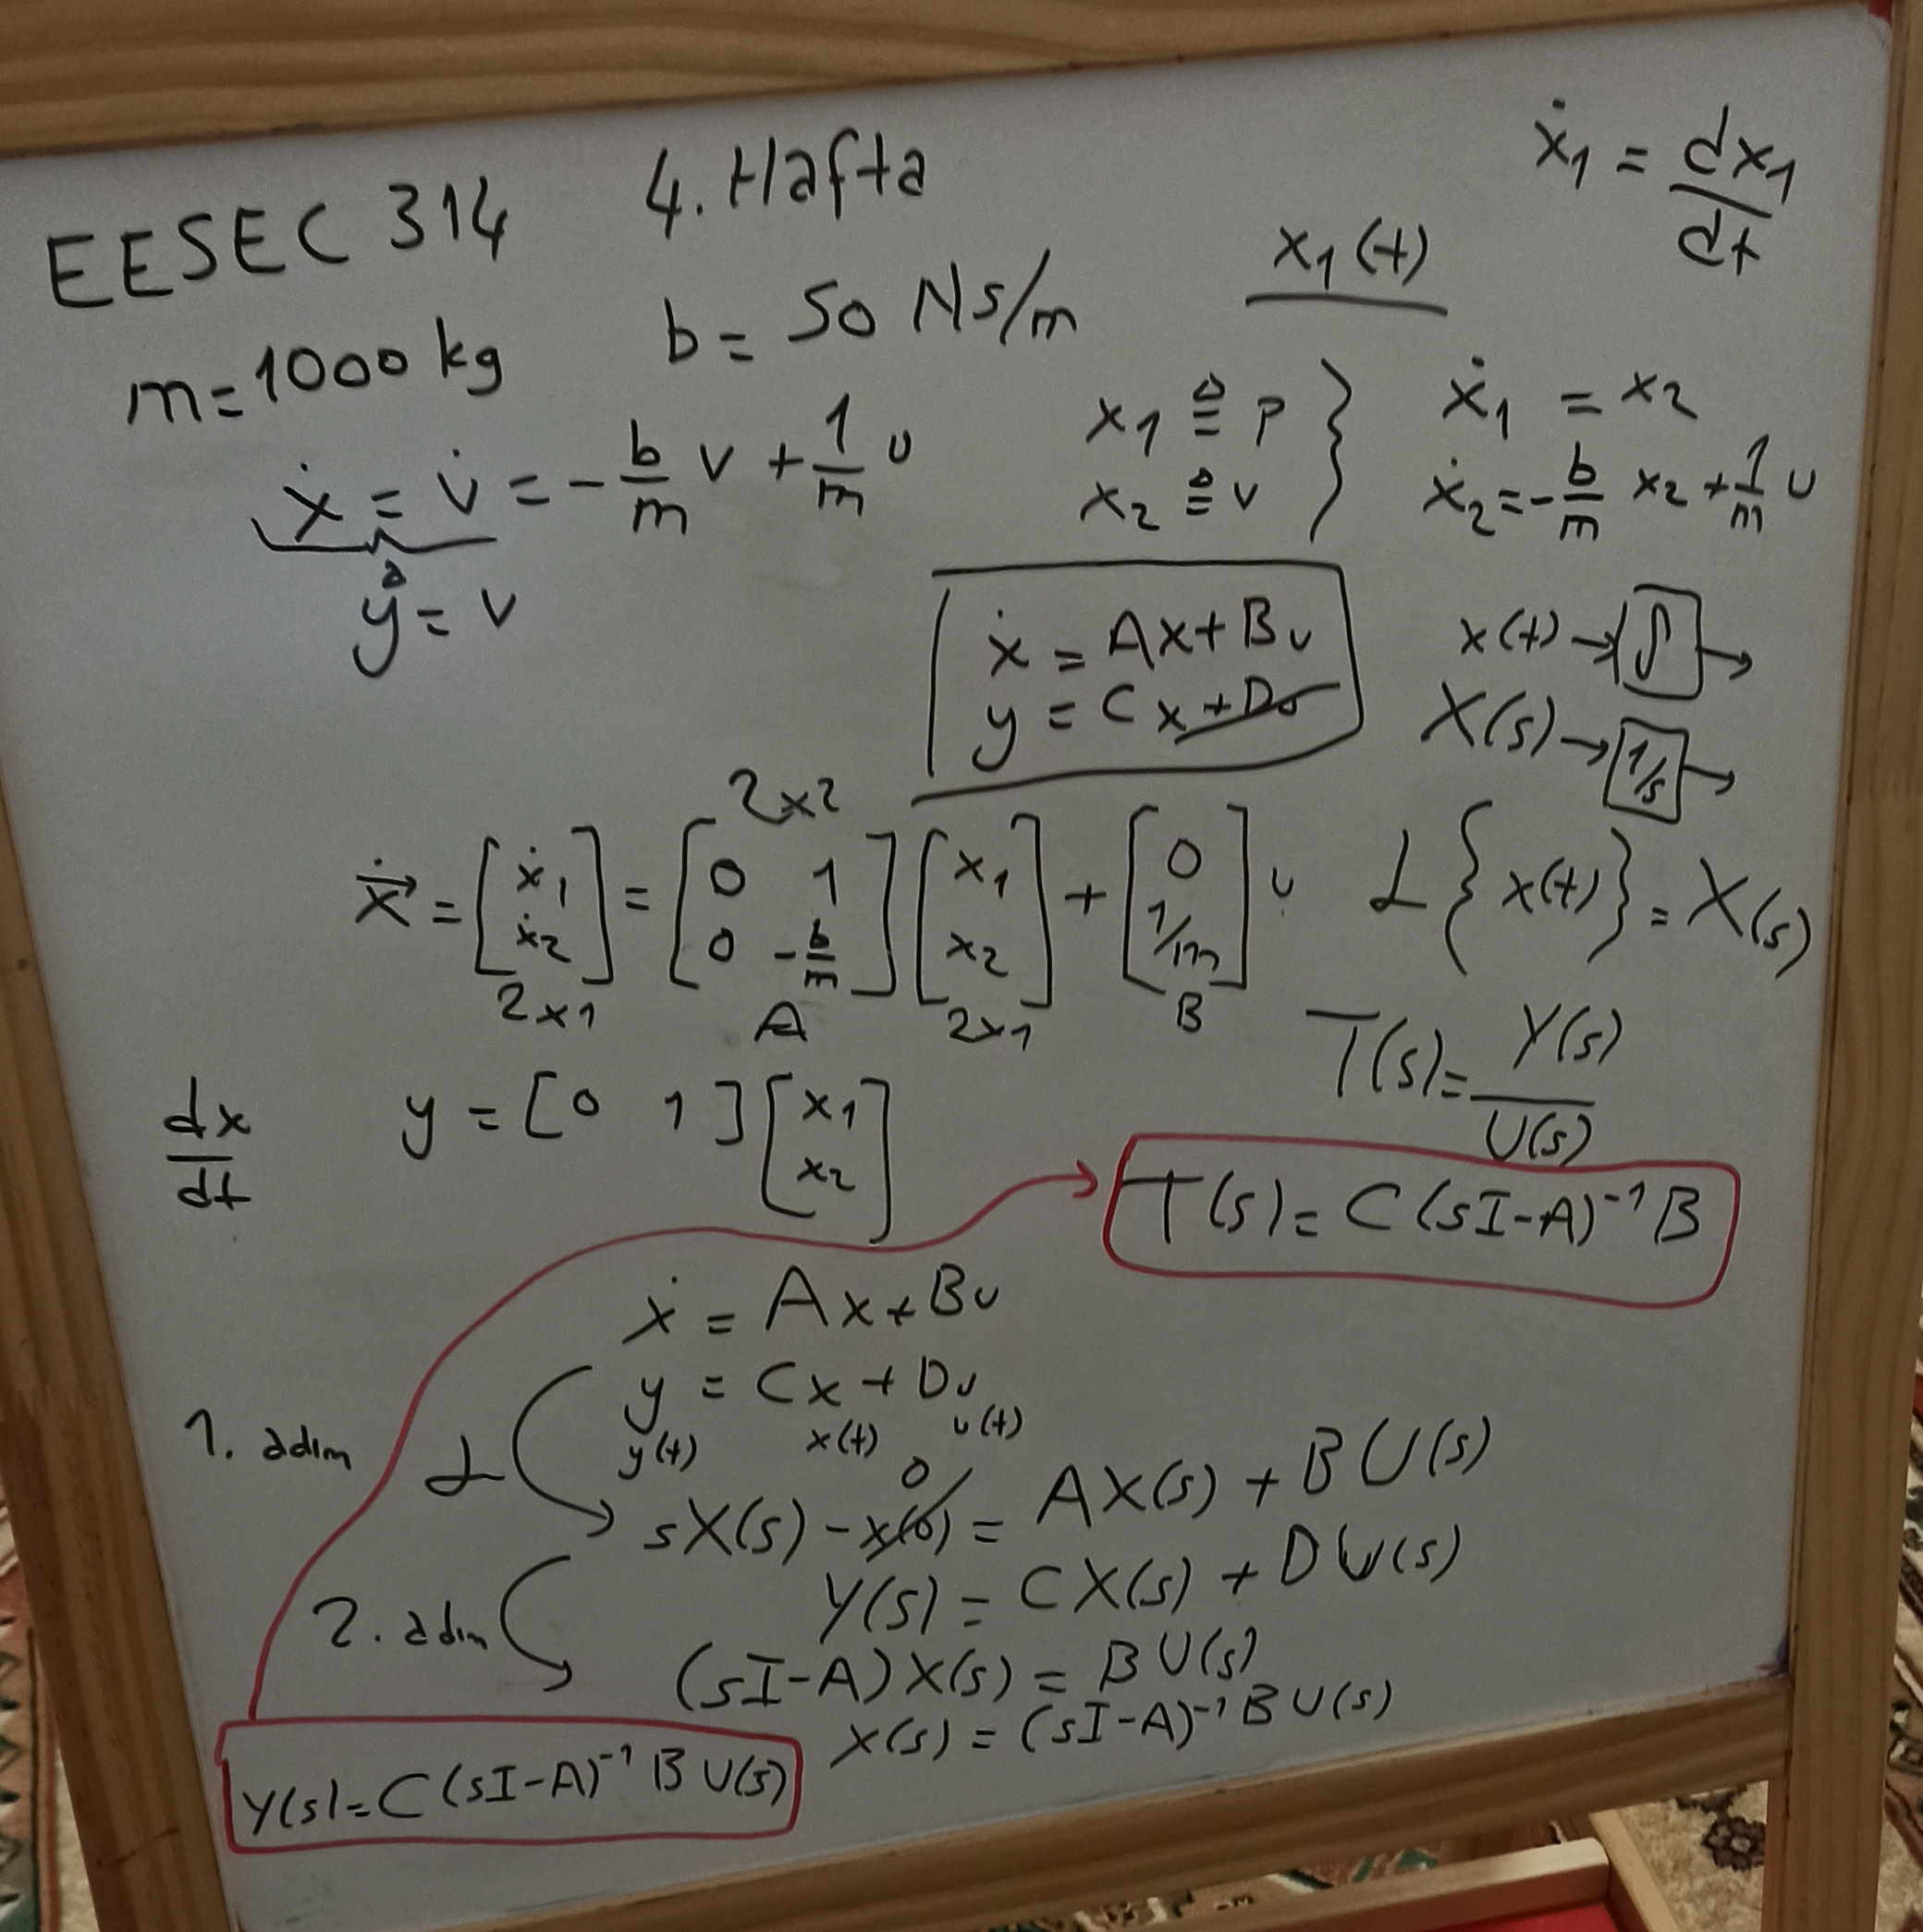 EESEC 314 4. Hafta
ẋ₁ = dx₁/dt
x₁(t)
m=1000 kg b= 50 Ns/m
ẋ = v̇ = -b/m v + 1/m u
y ≜ v
x₁ ≜ p
x₂ ≜ v
ẋ₁ = x₂
ẋ₂=-b/m x₂ + 1/m u
ẋ = Ax+Bu
y = Cx+Du
x(t)→[∫]→
X(s)→[1/s]→
2x2
ẋ = [ẋ₁ ẋ₂] = [0 1 0 -b/m] [x₁ x₂] + [0 1/m] u
2x1 A 2x1 B
L{x(t)} = X(s)
T(s)= Y(s)/U(s)
dx/dt
y = [0 1] [x₁ x₂]
T(s)= C(sI-A)⁻¹B
ẋ = Ax+Bu
y = Cx + Du
y(t) x(t) u(t)
1. adım L
0
sX(s) - x(0) = AX(s) + BU(s)
Y(s) = CX(s) + DU(s)
2. adım
(sI-A)X(s) = BU(s)
X(s) = (sI-A)⁻¹BU(s)
Y(s)=C(sI-A)⁻¹BU(s)